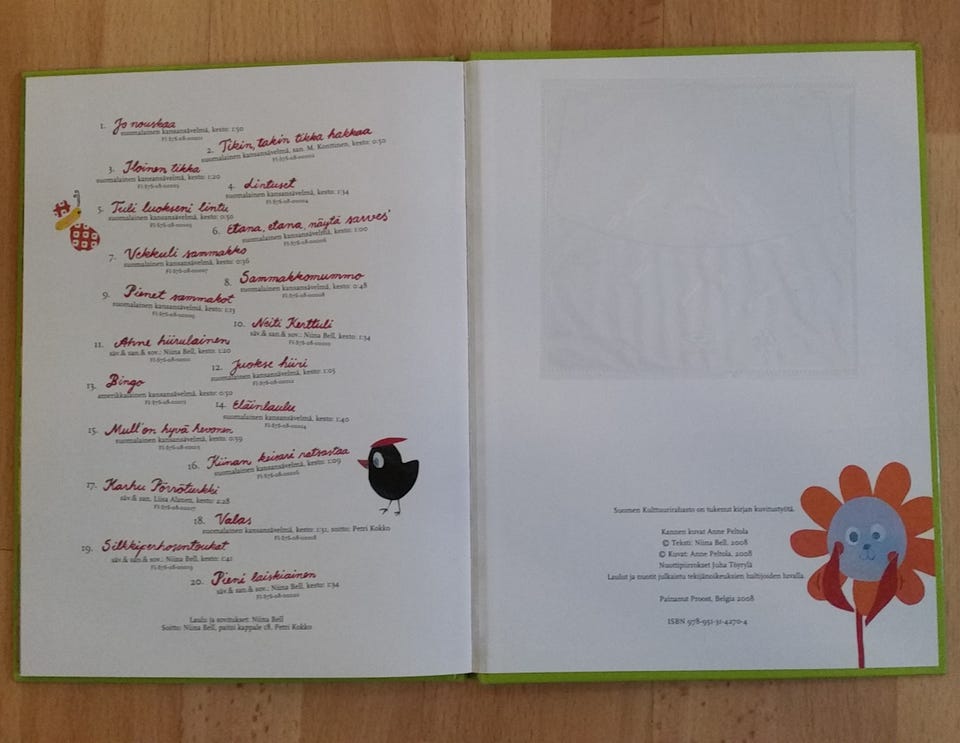 1. Jo nouskaa
suomalainen kansansävelmä, kesto: 1:50
FI-876-08-00001
2. Tikin, takin tikka hakkaa
suomalainen kansansävelmä, san. M. Konttinen, kesto: 0:50
FI-876-08-00002
3. Iloinen tikka
suomalainen kansansävelmä, kesto: 1:20
FI-876-08-00003
4. Lintuset
suomalainen kansansävelmä, kesto: 1:34
FI-876-08-00004
5. Tuli luokseni lintu
suomalainen kansansävelmä, kesto: 0:50
FI-876-08-00005
6. Etana, etana, näytä sarves'
suomalainen kansansävelmä, kesto: 1:00
FI-876-08-00006
7. Vekkuli sammakko
suomalainen kansansävelmä, kesto: 0:36
FI-876-08-00007
8. Sammakkomummo
suomalainen kansansävelmä, kesto: 0:48
FI-876-08-00008
9. Pienet sammakot
suomalainen kansansävelmä, kesto: 1:13
FI-876-08-00009
10. Neiti Kerttuli
säv.& san.& sov.: Niina Bell, kesto: 1:34
FI-876-08-00010
11. Ahne hiirulainen
säv.& san.& sov.: Niina Bell, kesto: 1:20
FI-876-08-00011
12. Juokse hiiri
suomalainen kansansävelmä, kesto: 1:05
FI-876-08-00012
13. Bingo
amerikkalainen kansansävelmä, kesto: 0:50
FI-876-08-00013
14. Eläinlaulu
suomalainen kansansävelmä, kesto: 1:40
FI-876-08-00014
15. Mull'on hyvä hevonen
suomalainen kansansävelmä, kesto: 0:59
FI-876-08-00015
16. Kiinan keisari ratsastaa
suomalainen kansansävelmä, kesto: 1:09
FI-876-08-00016
17. Karhu Pörröturkki
säv.& san. Liisa Ahonen, kesto: 2:28
FI-876-08-00017
18. Valas
suomalainen kansansävelmä, kesto: 1:31, soitto: Petri Kokko
FI-876-08-00018
19. Silkkiperhosentoukat
säv.& san.& sov.: Niina Bell, kesto: 1:42
FI-876-08-00019
20. Pieni laiskiainen
säv.& san.& sov.: Niina Bell, kesto: 1:34
FI-876-08-00020
Laulu ja sovitukset: Niina Bell
Soitto: Niina Bell, paitsi kappale 18, Petri Kokko
Suomen Kulttuurirahasto on tukenut kirjan kuvitustyötä.
Kannen kuvat Anne Peltola
© Teksti: Niina Bell, 2008
© Kuvat: Anne Peltola, 2008
Nuottipiirrokset Juha Töyrylä
Laulut ja nuotit julkaistu tekijänoikeuksien haltijoiden luvalla.
Painanut Proost, Belgia 2008
ISBN 978-951-31-4270-4